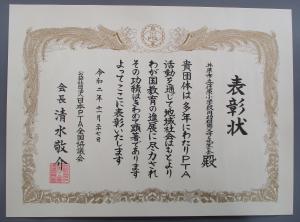 表彰状
殿
貴団体は多年にわたりPTA
活動を通じて地域社会はもとより
わが国教育の進展に尽力され
その功績はきわめて顕著であります
よってここに表彰いたします
令和二年十一月二十七日
公益社団法人日本PTA全国協議会
会長 清水敬介